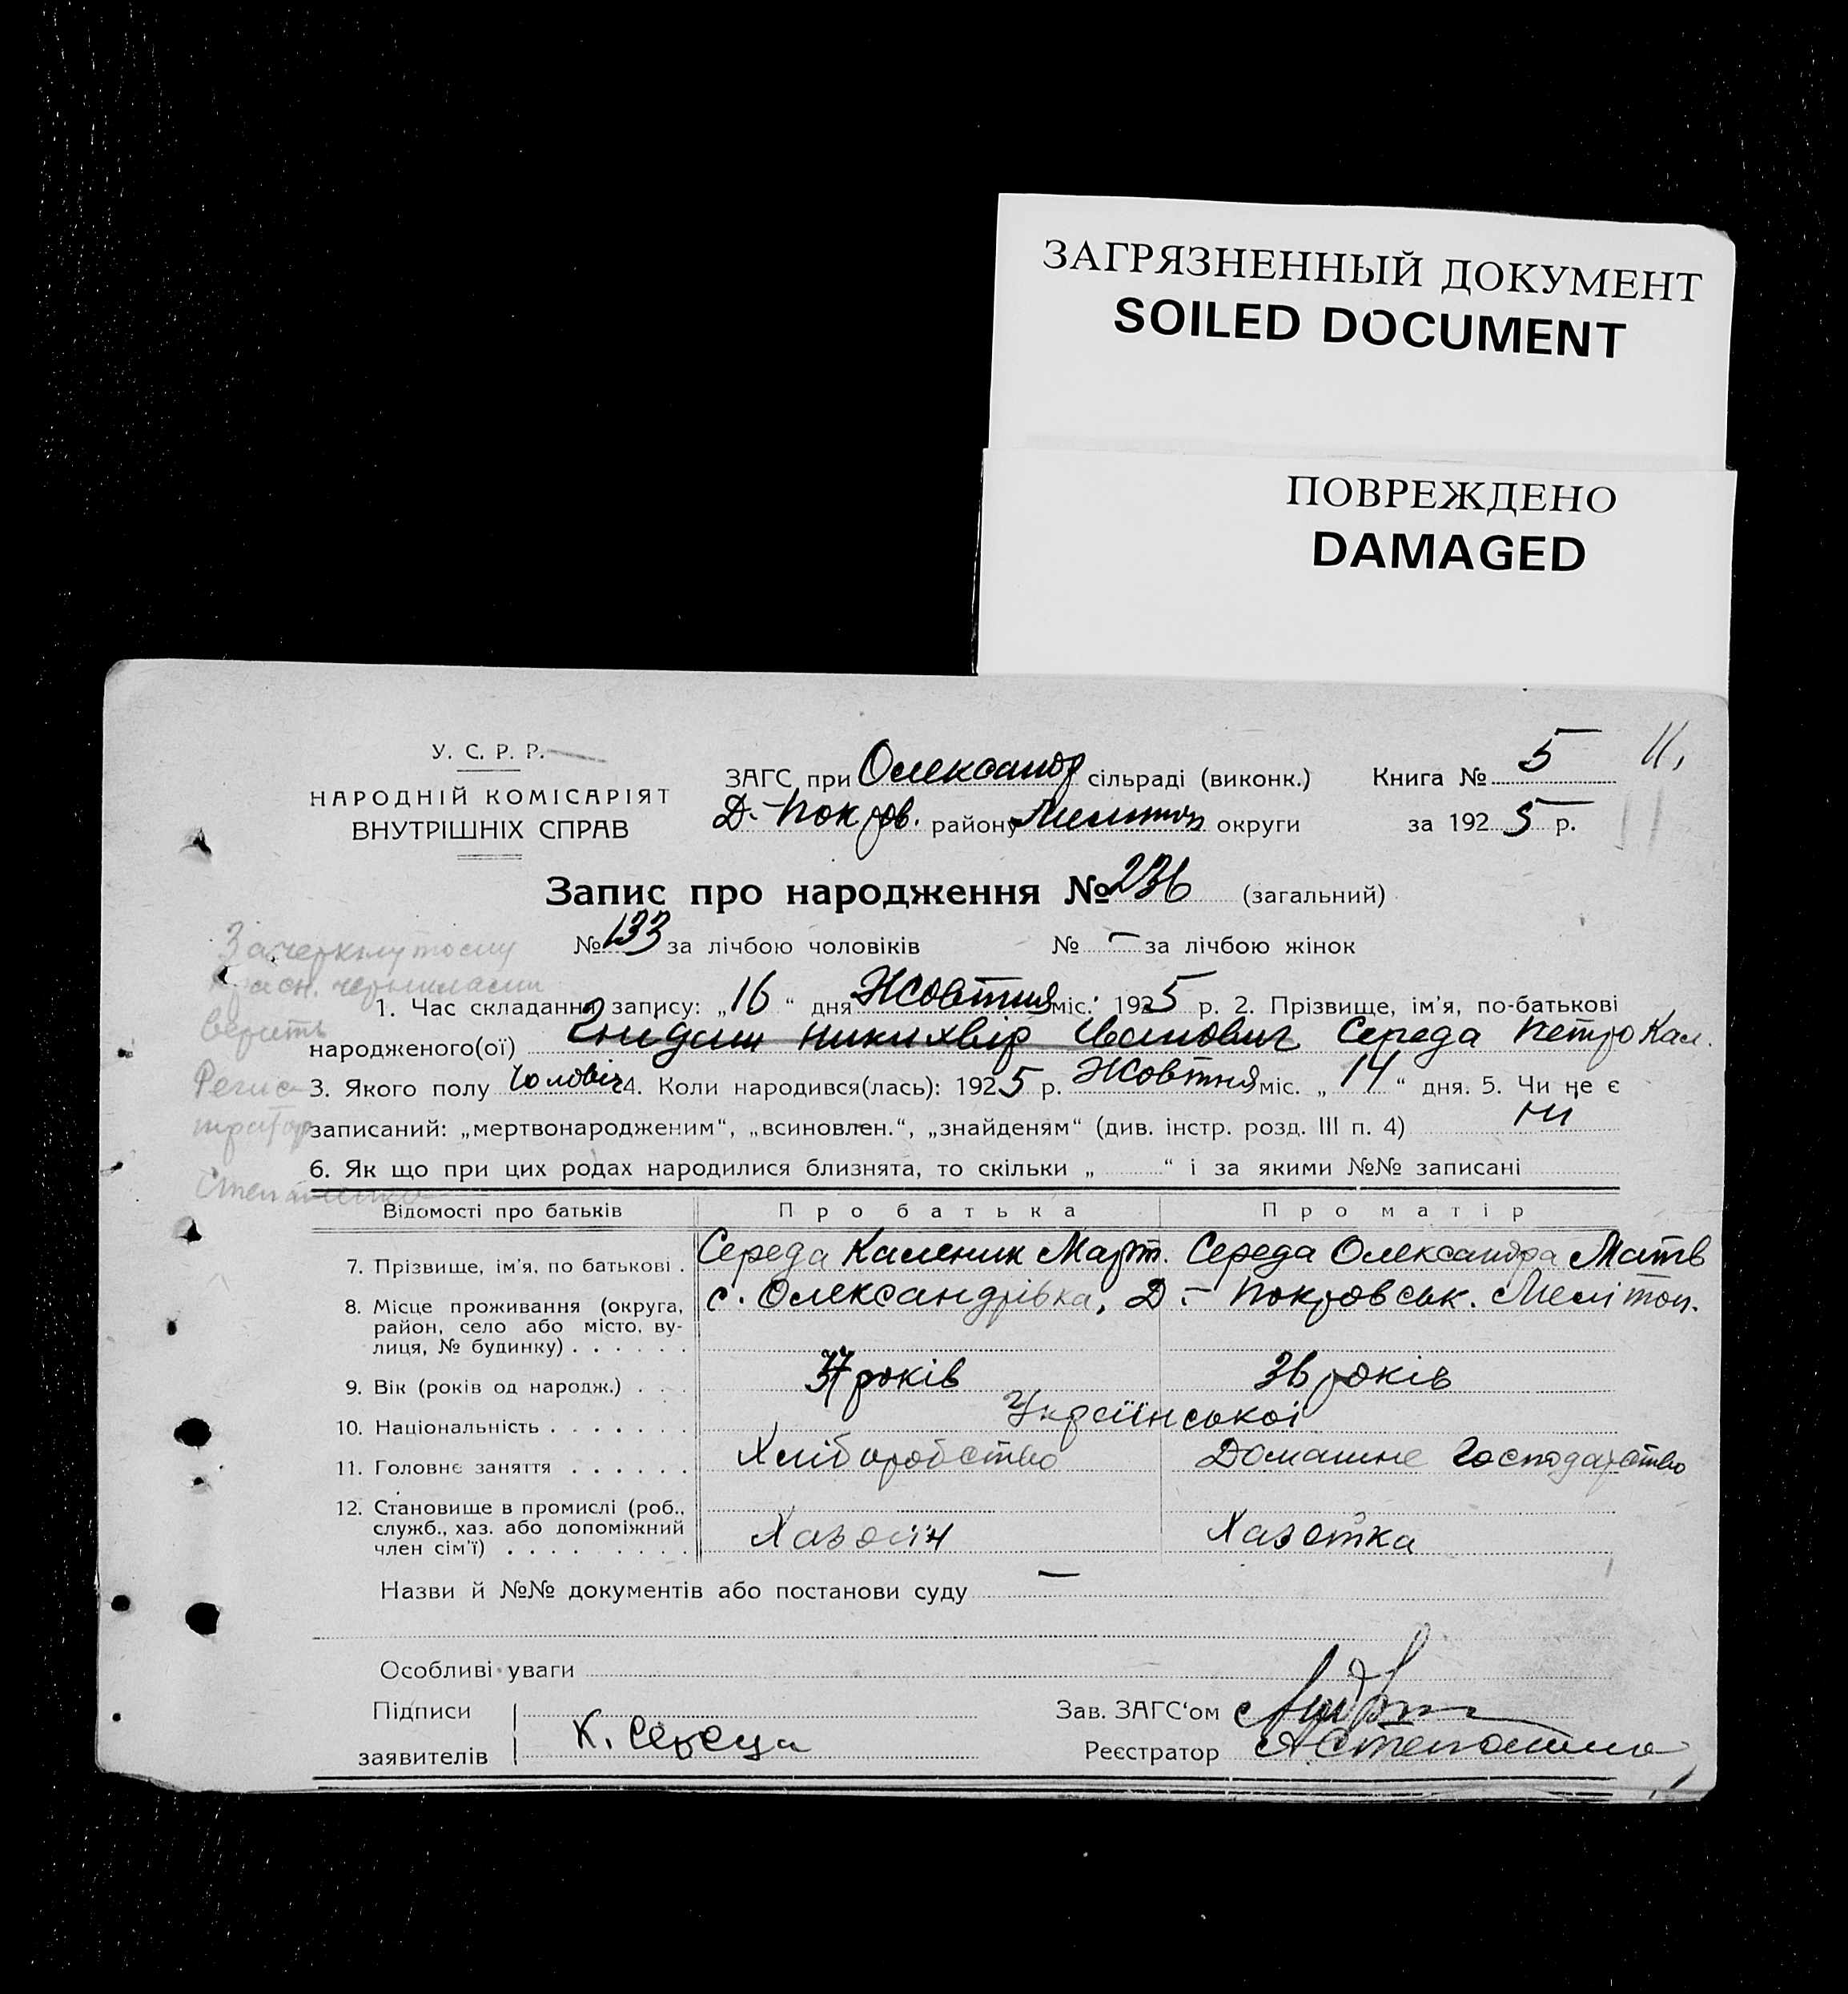 ЗАГРЯЗНЕННЫЙ ДОКУМЕНТ
SOILED DOCUMENT
ПОВРЕЖДЕНО
DAMAGED
У. С. Р. Р.
НАРОДНІЙ КОМІСАРІЯТ
ВНУТРІШНІХ СПРАВ
ЗАГС при Олександр сільраді (виконк.) Книга № 5 11,
Д.-Покров. району Мелітоп округи за 1925 р.
Запис про народження № 236 (загальний)
№ 133 за лічбою чоловіків № — за лічбою жінок
Зачеркнутому
красн. чернилами
верить
Регис
тратор
Степаненко
1. Час складання запису: „16“ дня Жовтня міс. 1925 р. 2. Прізвище, ім'я, по-батькові
народженого(ої) Никихвір Іванович Середа Петро Кал.
3. Якого полу Чоловіч 4. Коли народився(лась): 1925 р. Жовтня міс. „14“ дня. 5. Чи не є
записаний: „мертвонародженим“, „всиновлен.“, „знайденям“ (див. інстр. розд. III п. 4) ні
6. Як що при цих родах народилися близнята, то скільки „ “ і за якими №№ записані
Відомості про батьків Про батька Про матір
7. Прізвище, ім'я, по батькові . Середа Каленик Март. Середа Олександра Матв
8. Місце проживання (округа, район, село або місто, вулиця, № будинку) . . . . . . с. Олександрівка, Д.- Покровськ. Мелітоп.
9. Вік (років од народж.) . . . 37 років 36 років
10. Національність . . . . . . . Української
11. Головнє заняття . . . . . . Хліборобство Домашне Господарство
12. Становище в промислі (роб., служб., хаз. або допоміжний член сім'ї) . . . . . . . . Хазяїн Хазяйка
Назви й №№ документів або постанови суду —
Особливі уваги
Підписи Зав. ЗАГС'ом
заявителів К. Середа Реєстратор А Степаненко